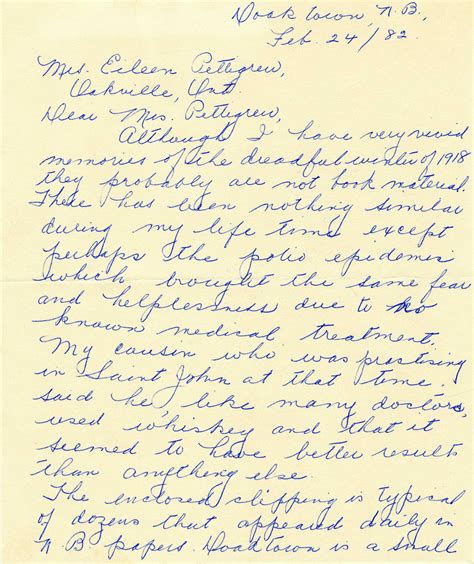 Doaktown, N.B.,
Feb. 24/82.
Mrs. Eileen Pettigrew,
Oakville, Ont.
Dear Mrs. Pettigrew,
Although I have very vivid
memories of the dreadful winter of 1918
they probably are not book material.
There has been nothing similar
during my life time except
perhaps the polio epidemic
which brought the same fear
and helplessness due to no
known medical treatment.
My cousin who was practising
in Saint John at that time
said he, like many doctors,
used whiskey and that it
seemed to have better results
than anything else
The enclosed clipping is typical
of dozens that appeared daily in
N B papers. Doaktown is a small